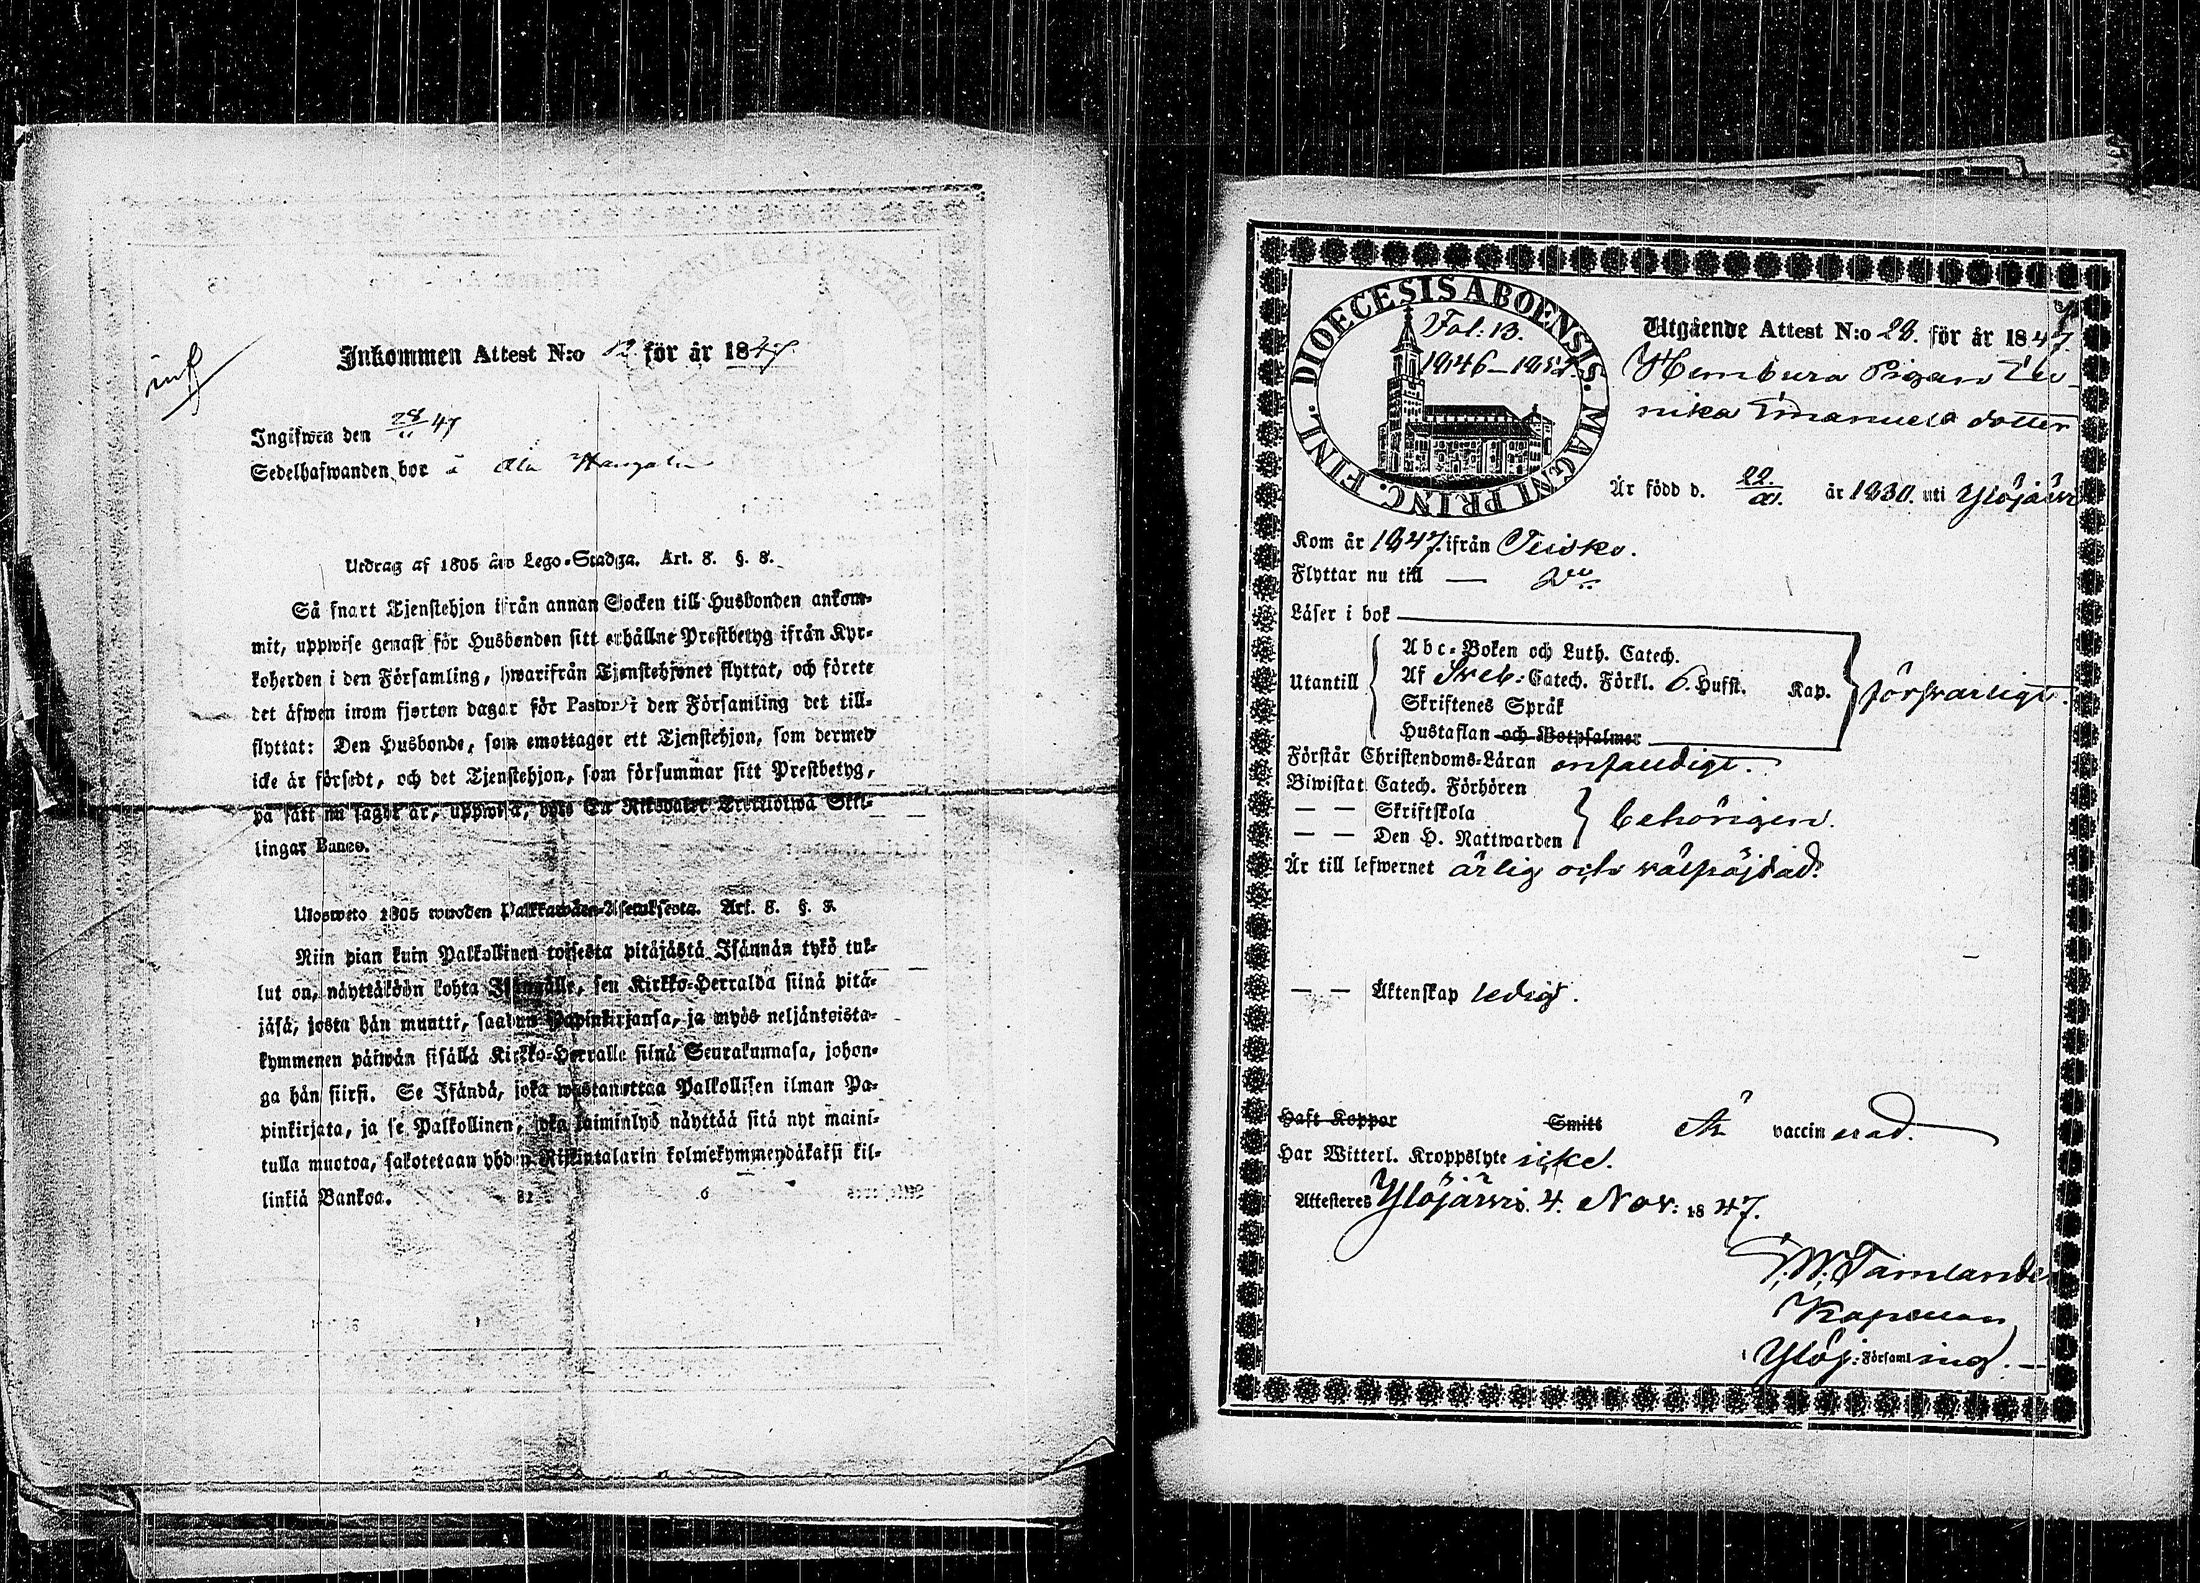 inf
Inkommen Attest N:o 12. för år 1847.
Ingifwen den 28/11 47
Sedelhafwanden bor å Ala
Utdrag af 1805 års Lego-Stadga. Art. 8. §. 8.
Så snart Tjenstehjon ifrån annan Socken till Husbonden ankom-
mit, uppwise genast för Husbonden sitt erhållne Prestbetyg ifrån Kyr-
koherden i den Församling, hwarifrån Tjenstehjonet flyttat, och förete
det äfwen inom fjorton dagar för Pastor i den Församling det till-
flyttat: Den Husbonde, som emottager ett Tjenstehjon, som dermed
icke är försedt, och det Tjenstehjon, som försummar sitt Prestbetyg,
på sätt nu sagdt är, uppwisa, böte En Riksdaler Trettiotwå Skil-
lingar Banco.
Ulosweto 1805 wuoden Palkkawäen-Asetuksesta. Art. 8. §. 8.
Niin pian kuin Palkollinen toisesta pitäjästä Isännän tykö tul-
lut on, näyttäköön kohta Isännälle, sen Kirkko-Herralda siinä pitä-
jäsä, josta hän muutti, saadun Papinkirjansa, ja myös neljäntoista-
kymmenen päiwän sisällä Kirkko-Herralle siinä Seurakunnasa, johon-
ga hän siirsi. Se Isändä, joka wastanottaa Palkollisen ilman Pa-
pinkirjata, ja se Palkollinen, joka laiminlyö näyttää sitä nyt maini-
tulla muotoa, sakotetaan yhden Riksintalarin kolmekymmendäkaksi kil-
linkiä Bankoa.
DIOECESIS ABOENSIS. MAGNI PRINC. FINL.
Fol: 13.
1846–1852.
Utgående Attest N:o 28. för år 1847.
Hembura Pigan Ul-
rika Emanuels dotter
Är född d. 22/XI. år 1830. uti Ylöjärvi
Kom år 1847. ifrån Teisko.
Flyttar nu till — Do
Läser i bok
Abc-Boken och Luth. Catech.
Utantill Af Sveb: Catech. Förkl. 6. Hufst. Kap. försvarligt.
Skriftenes Språk
Hustaflan och Botpsalmer
Förstår Christendoms-Läran enfaldigt.
Biwistat Catech. Förhören
— — Skriftskola behörigen.
— — Den H. Nattwarden
Är till lefwernet ärlig och välfräjdad.
— — Äktenskap ledig.
Haft Koppor Smitt Är vaccinerad.
Har Witterl. Kroppslyte icke.
Attesteras Ylöjärvi d. 4. Nov: 1847.
Tamlander
Kapellan
i Ylöj: Församling.